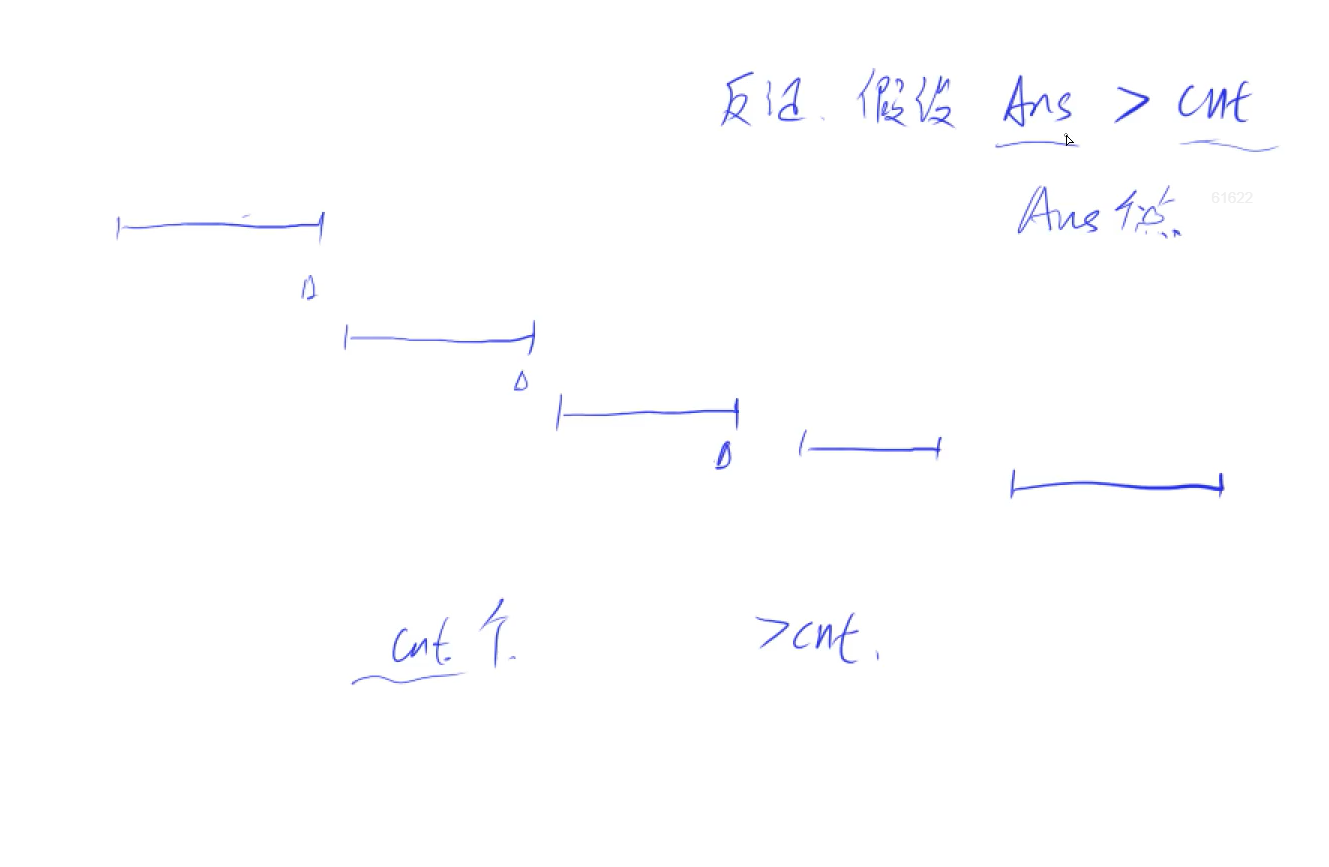 反证. 假设 Ans > cnt
Ans个点
61622
cnt.个. >cnt.